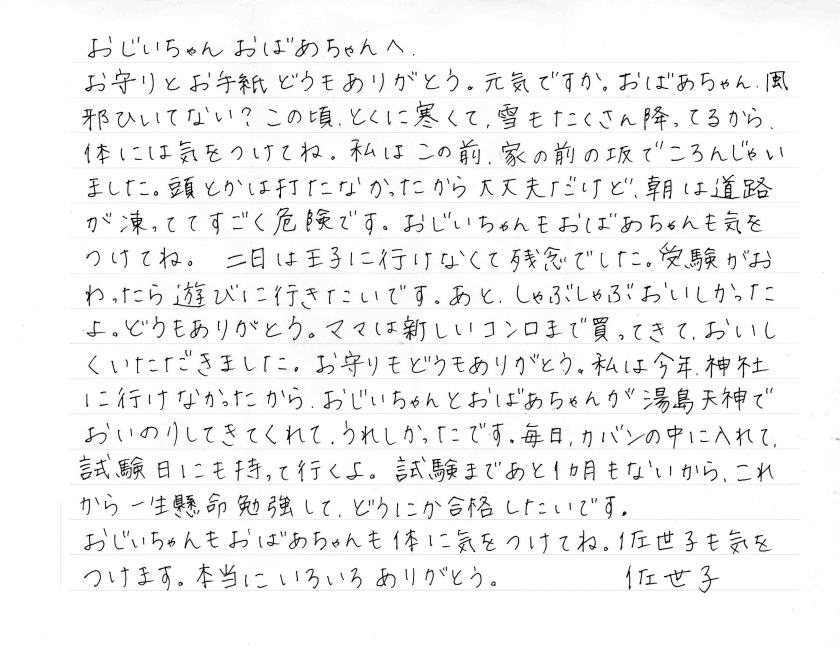 おじいちゃん おばあちゃんへ.
お守りとお手紙どうもありがとう。元気ですか。おばあちゃん、風
邪ひいてない?この頃、とくに寒くて、雪もたくさん降ってるから、
体には気をつけてね。私はこの前、家の前の坂でころんじゃい
ました。頭とかは打たなかったから大丈夫だけど、朝は道路
が凍っててすごく危険です。おじいちゃんもおばあちゃんも気を
つけてね。 二日は王子に行けなくて残念でした。受験がお
わったら遊びに行きたいです。あと、しゃぶしゃぶおいしかった
よ。どうもありがとう。ママは新しいコンロまで買ってきて、おいし
くいただきました。お守りもどうもありがとう。私は今年、神社
に行けなかったから、おじいちゃんとおばあちゃんが湯島天神で
おいのりしてきてくれて、うれしかったです。毎日、カバンの中に入れて、
試験日にも持って行くよ。試験まであと1カ月もないから、これ
から一生懸命勉強して、どうにか合格したいです。
おじいちゃんもおばあちゃんも体に気をつけてね。佐世子も気を
つけます。本当にいろいろありがとう。 佐世子